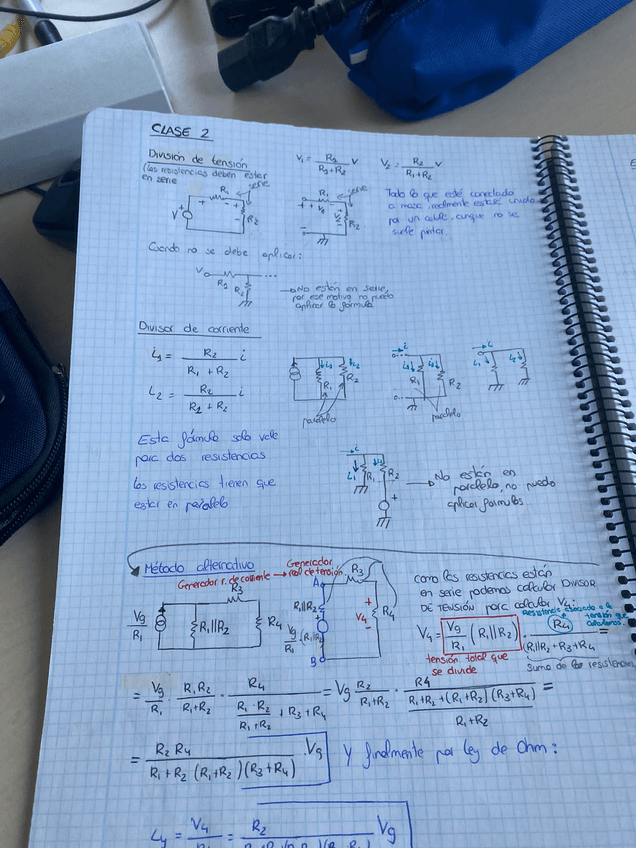 CLASE 2
División de tensión
(las resistencias deben estar
en serie
V₁ = R₁ / (R₁+R₂) v
V₂ = R₂ / (R₁+R₂) v
R₁ serie
V R₂
R₁ serie
V₂ R₂
Todo lo que esté conectado
a masa, realmente estará unido
por un cable, aunque no se
suele pintar.
Cuando no se debe aplicar:
V R₁ ...
R₂
→ No están en serie,
por ese motivo no puedo
aplicar la fórmula
Divisor de corriente
i₁ = R₂ / (R₁ + R₂) i
i₂ = R₂ / (R₁ + R₂) i
i₁ i₂
R₁ R₂
paralelo
i
i₁ i₂
R₁ R₂
paralelo
i
i₁ i₂
Esta fórmula solo vale
para dos resistencias
Las resistencias tienen que
estar en paralelo
i
i₁ R₁ R₂
→ No están en
paralelo, no puedo
aplicar fórmulas
Método alternativo
Generador r. de corriente → Generador
real de tensión
Vg/R₁ R₁||R₂ R₃ R₄
A R₃
R₁||R₂ V₄ R₄
Vg/R₁ (R₁||R₂)
B
como las resistencias están
en serie podemos calcular DIVISOR
DE TENSIÓN para calcular V₄:
V₄ = Vg/R₁ (R₁||R₂) · R₄ / (R₁||R₂ + R₃ + R₄) =
tensión total que
se divide
Suma de las resistencias
= Vg/R₁ · R₁R₂/(R₁+R₂) · R₄ / (R₁·R₂/(R₁+R₂) + R₃ + R₄) = Vg R₂/(R₁+R₂) · R₄ / ((R₁+R₂+(R₁+R₂)(R₃+R₄))/(R₁+R₂)) =
= R₂R₄ / (R₁+R₂ (R₁+R₂)(R₃+R₄)) · Vg Y finalmente por Ley de Ohm:
i₄ = V₄ = R₂ Vg